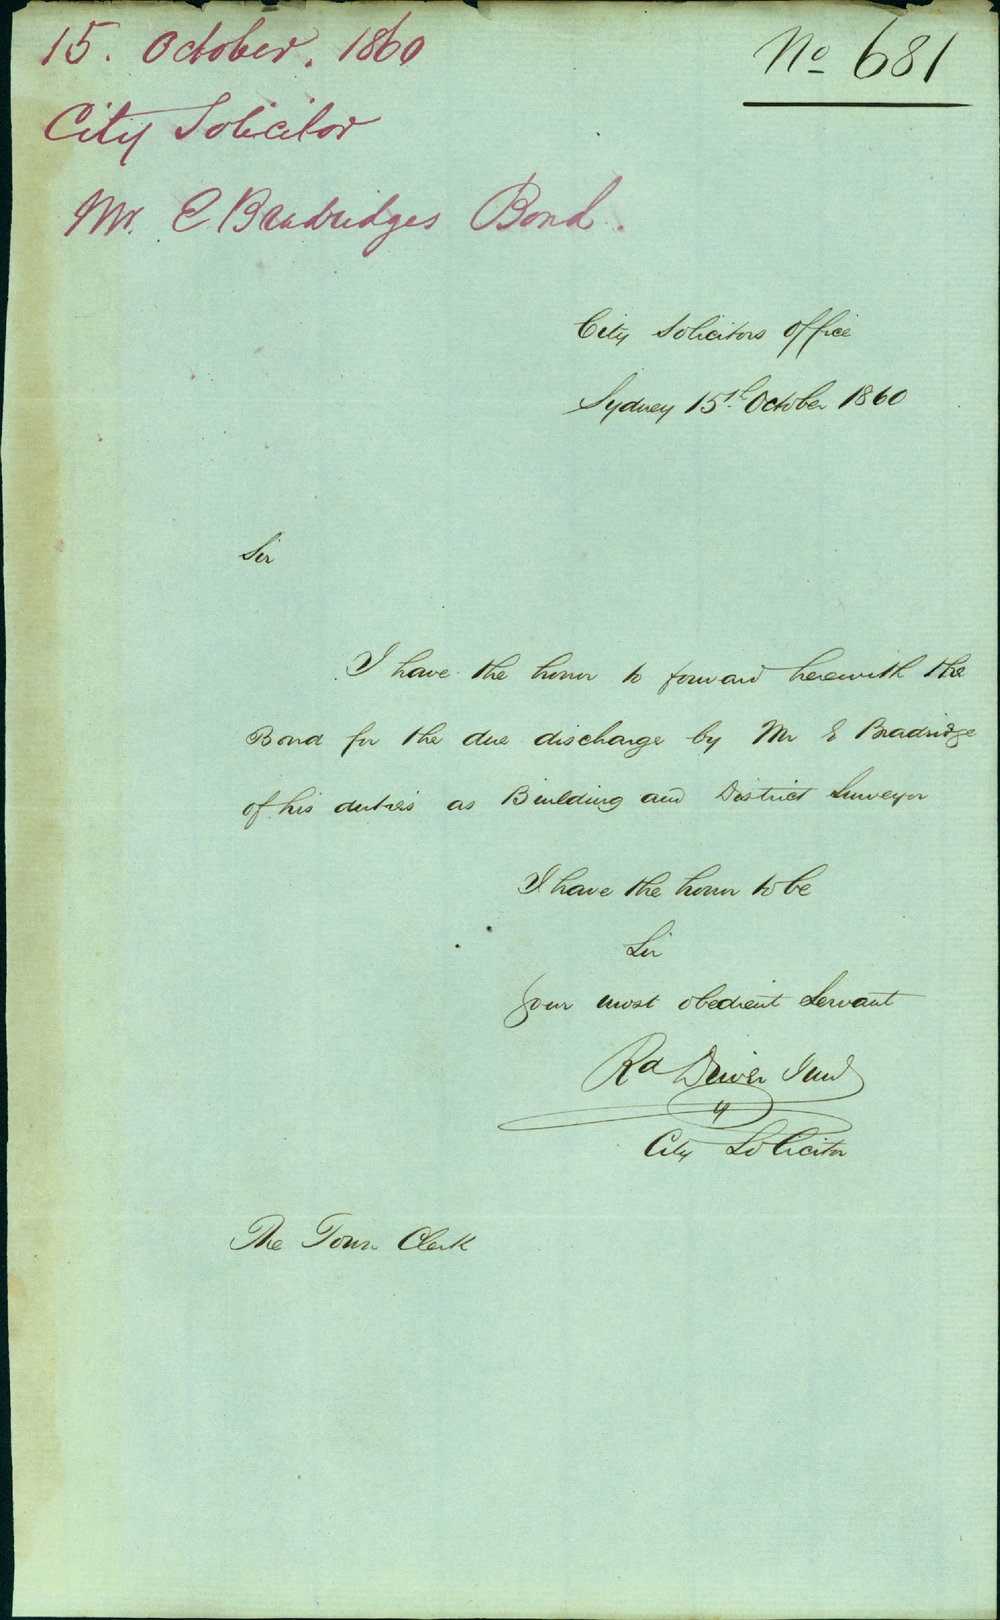 15. October. 1860
No 681
City Solicitor
Mr. E Bradridges Bond.
City Solicitors Office
Sydney 15th October 1860
Sir
I have the honor to forward herewith the
Bond for the due discharge by Mr E Bradridge
of his duties as Building and District Surveyor
I have the honor to be
Sir
Your most obedient Servant
Rd Driver Junr
City Solicitor
The Town Clerk